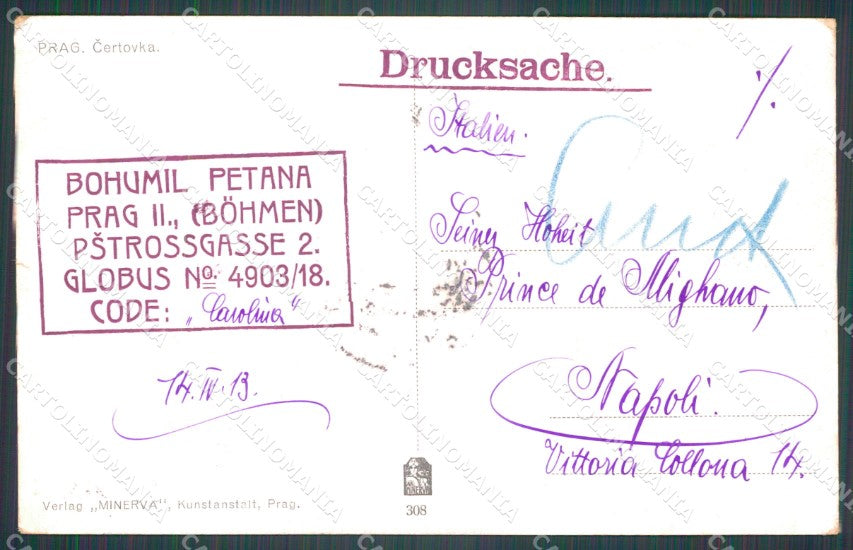 PRAG. Čertovka.
Drucksache.
Italien.
BOHUMIL PETANA
PRAG II., (BÖHMEN)
PŠTROSSGASSE 2.
GLOBUS No. 4903/18.
CODE: „Carolina“
14. IV. 13.
Seiner Hoheit
Prince de Mignano,
Napoli.
Vittoria Collona 14.
Verlag „MINERVA“, Kunstanstalt, Prag.
MINERVA
308
CARTOLINOMANIA